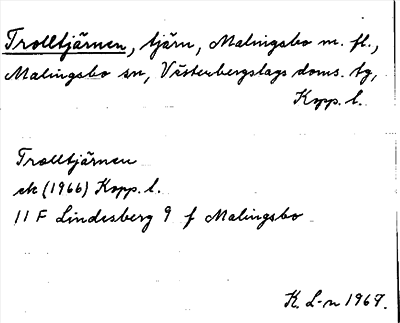 Trolltjärnen, tjärn, Malingsbo m. fl.,
Malingsbo sn, Västerbergslags doms. tg,
Kopp. l.
Trolltjärnen
ek (1966) Kopp. l.
11 F Lindesberg 9 f Malingsbo
K. L-n 1969.